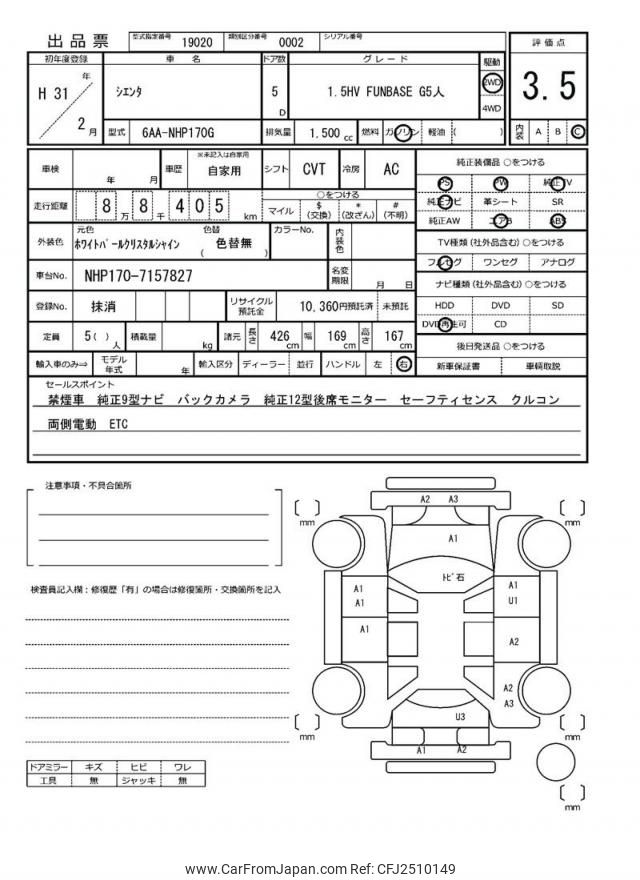 出品票 型式指定番号 19020 類別区分番号 0002 シリアル番号
初年度登録 車 名 ドア数 グレード 駆動 評価点
H 31 年 2 月 シエンタ 5 D 1.5HV FUNBASE G5人 2WD 4WD 3.5
型式 6AA-NHP170G 排気量 1.500 cc 燃料 ガソリン 軽油 ( ) 内装 A B C
車検 年 月 車歴 ※未記入は自家用 自家用 シフト CVT 冷房 AC
純正装備品 ○をつける
PS PW 純正TV
純正ナビ 革シート SR
純正AW エアB ABS
走行距離 8 万 8 千 4 0 5 km ○をつける
マイル $ (交換) * (改ざん) # (不明)
外装色 元色 ホワイトパールクリスタルシャイン 色替 ( 色替無 ) カラーNo. 内装色
TV種類 (社外品含む) ○をつける
フルセグ ワンセグ アナログ
車台No. NHP170-7157827 名変期限 月 日
ナビ種類 (社外品含む) ○をつける
HDD DVD SD
DVD再生可 CD
登録No. 抹消 リサイクル預託金 10,360円預託済 未預託
定員 5( ) 人 積載量 kg 諸元 長さ 426 cm 幅 169 cm 高さ 167 cm
後日発送品 ○をつける
新車保証書 車輌取説
輸入車のみ⇒ モデル年式 年 輸入区分 ディーラー 並行 ハンドル 左 右
セールスポイント
禁煙車 純正9型ナビ バックカメラ 純正12型後席モニター セーフティセンス クルコン
両側電動 ETC
注意事項・不具合箇所
検査員記入欄：修復歴「有」の場合は修復箇所・交換箇所を記入
A2 A3
mm mm
A1
トビ石
A1 A1
A1 U1
A1
A2
A2
A3
U3
mm mm
A1 A2
mm
ドアミラー キズ ヒビ ワレ
工具 無 ジャッキ 無
www.CarFromJapan.com Ref: CFJ2510149